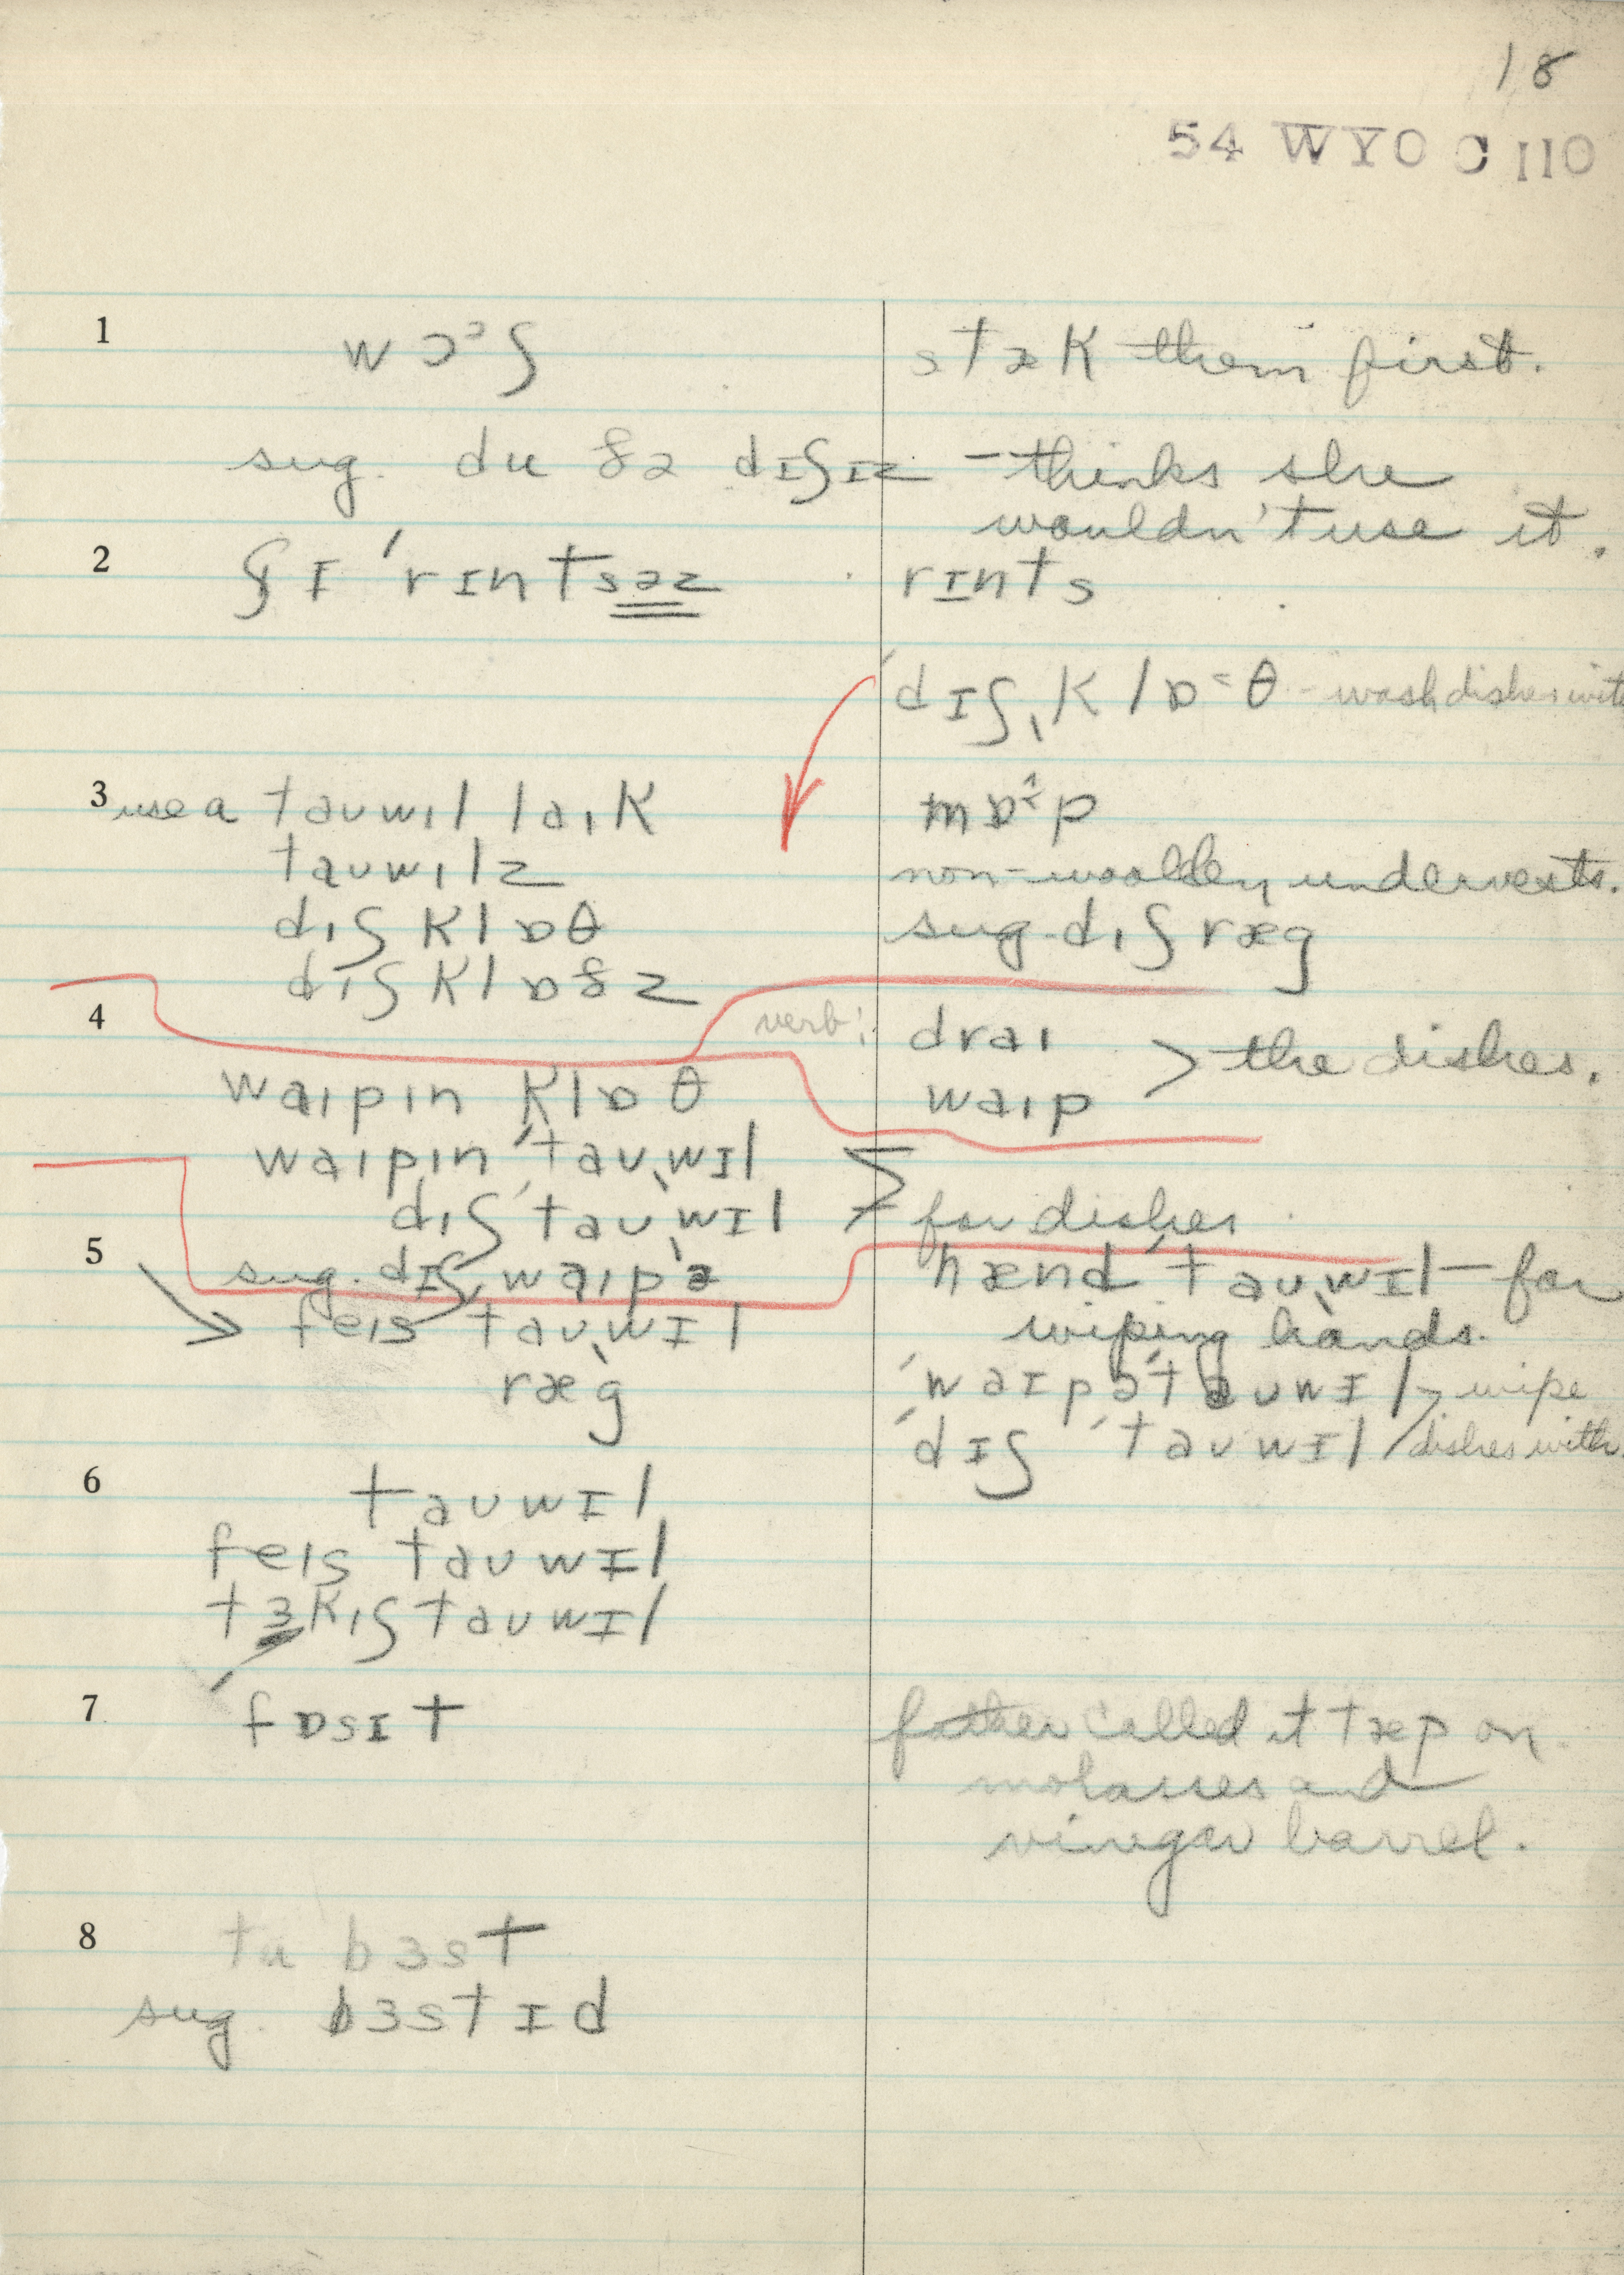 18
54 WYO C 110
1 wɔᵓʃ stæk them first.
sug. du ðə dɪʃɪz – thinks she
wouldn't use it.
2 ʃɪ ˈrɪntsəz rɪnts
ˈdɪʃˌklɒ˂θ - wash dishes with
3 use a tauwɪl laɪk mɒ˄p
tauwɪlz non-woolen undervests.
dɪʃ klɒθ sug. dɪʃ ræg
dɪʃ klɒðz
4 verb: draɪ > the dishes.
waɪpɪn klɒθ waɪp
waɪpɪn ˈtauˌwɪl
dɪʃ ˈtauˌwɪl > for dishes
5 sug. dɪʃˌwaɪpə hænd ˈtauˌwɪl – for
feɪs tauˌwɪl wiping hands.
ræg ˈwaɪpəˈtauwɪl > wipe
ˈdɪʃ ˈtauwɪl / dishes with
6 tauwɪl
feɪs tauwɪl
tɜkɪʃ tauwɪl
7 ˈfɒsɪt father called it tæp on
molasses and
vinegar barrel.
8 tu bɜst
sug. bɜstɪd